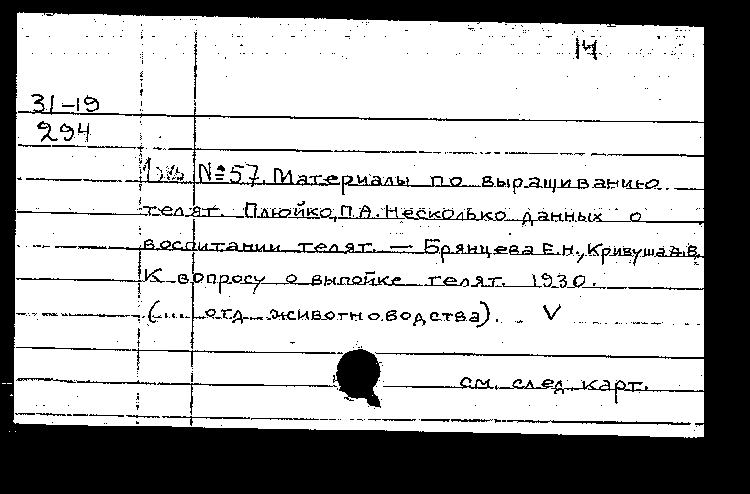 14
31-19
294
№57. Материалы по выращиванию
телят. Плюйко, П.А. Несколько данных о
воспитании телят. — Брянцева Е.Н., Кривуша А.В.
К вопросу о выпойке телят. 1930.
(... отд. животноводства). V
см. след. карт.